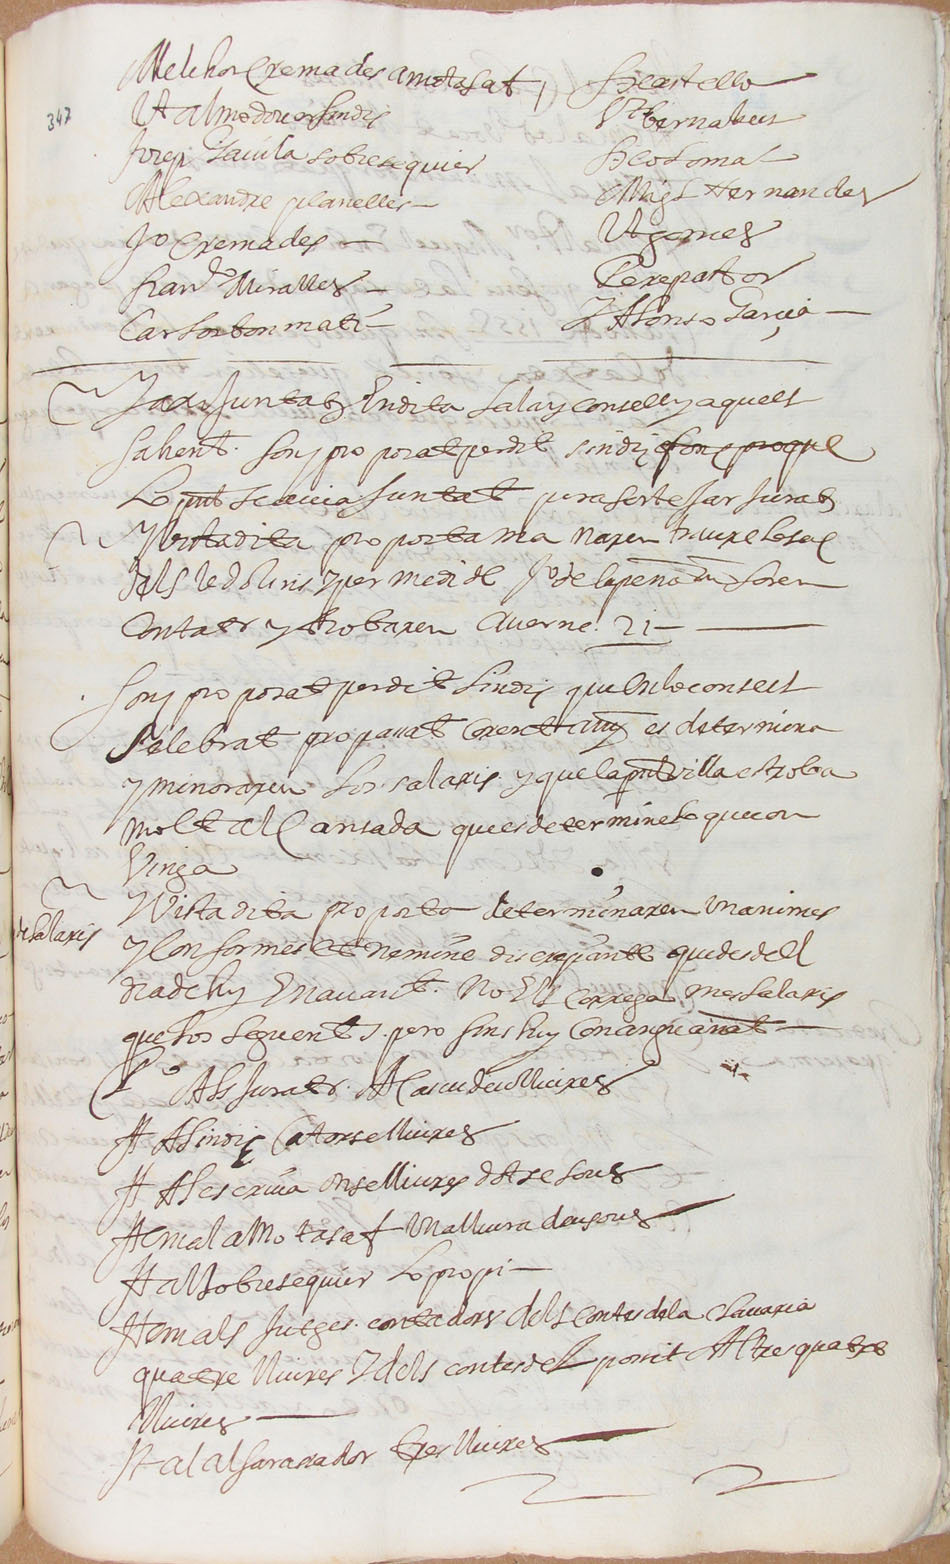 347
Melchor Cremades amotasaf
Vt almodover sindic
Josep Davila sobresequier
Alexandre planelles
Jo Cremades
Franco Miralles
Carlos bonmati
Castello
Vt bernabeu
Migl Hernandes
Vt gomes
Pere pastor
J Alfonso Garçia
Y axi Juntats En dita Sala y Consell y aquell
Sahent. fonj proposat per dit sindic
Lo pnt se avia Juntat pera sortejar Jurats
Y vista dita proposta mananaren traure lo sac
dels redolins y per medi de Jo de la pena foren
Contats y trobaren averne 21
fonj proposat per dit Sindic que en lo consell
Selebrat prop pasat Corent any es determina
y minoraren los salaris y que la pnt villa estroba
molt alCansada que es determine lo que con
Vinga
de salaris
Y Vista dita proposta determinaren Vnanimes
y Conformes et nemine discrepante que des del
dia de huy En avant. No Els Correga mes salaris
que los seguents. pero fins huy Con anguañat
Po Als Jurats. A Cascu deu lliures
It Al sindic Catorse lliures
It Al escriva onse lliures dotse sous
Item al amotasaf Una lliura deu sous
It al sobresequier Lo propi
Item als Jutges contadors dels Contes dela Clavaria
quatre lliures Y dels contes del posit Altres quatre
lliures
It al alsaranador tres lliures